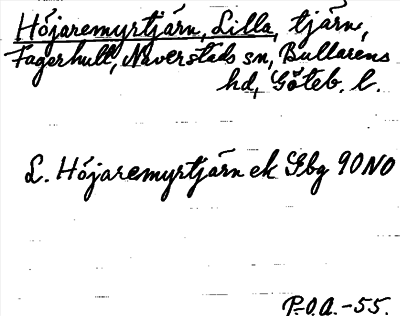 Höjaremyrtjärn, Lilla, tjärn,
Fagerhult, Naverstads sn, Bullarens
hd, Göteb. l.
L. Höjaremyrtjärn ek Gbg 90 NO
P.O.A. -55.